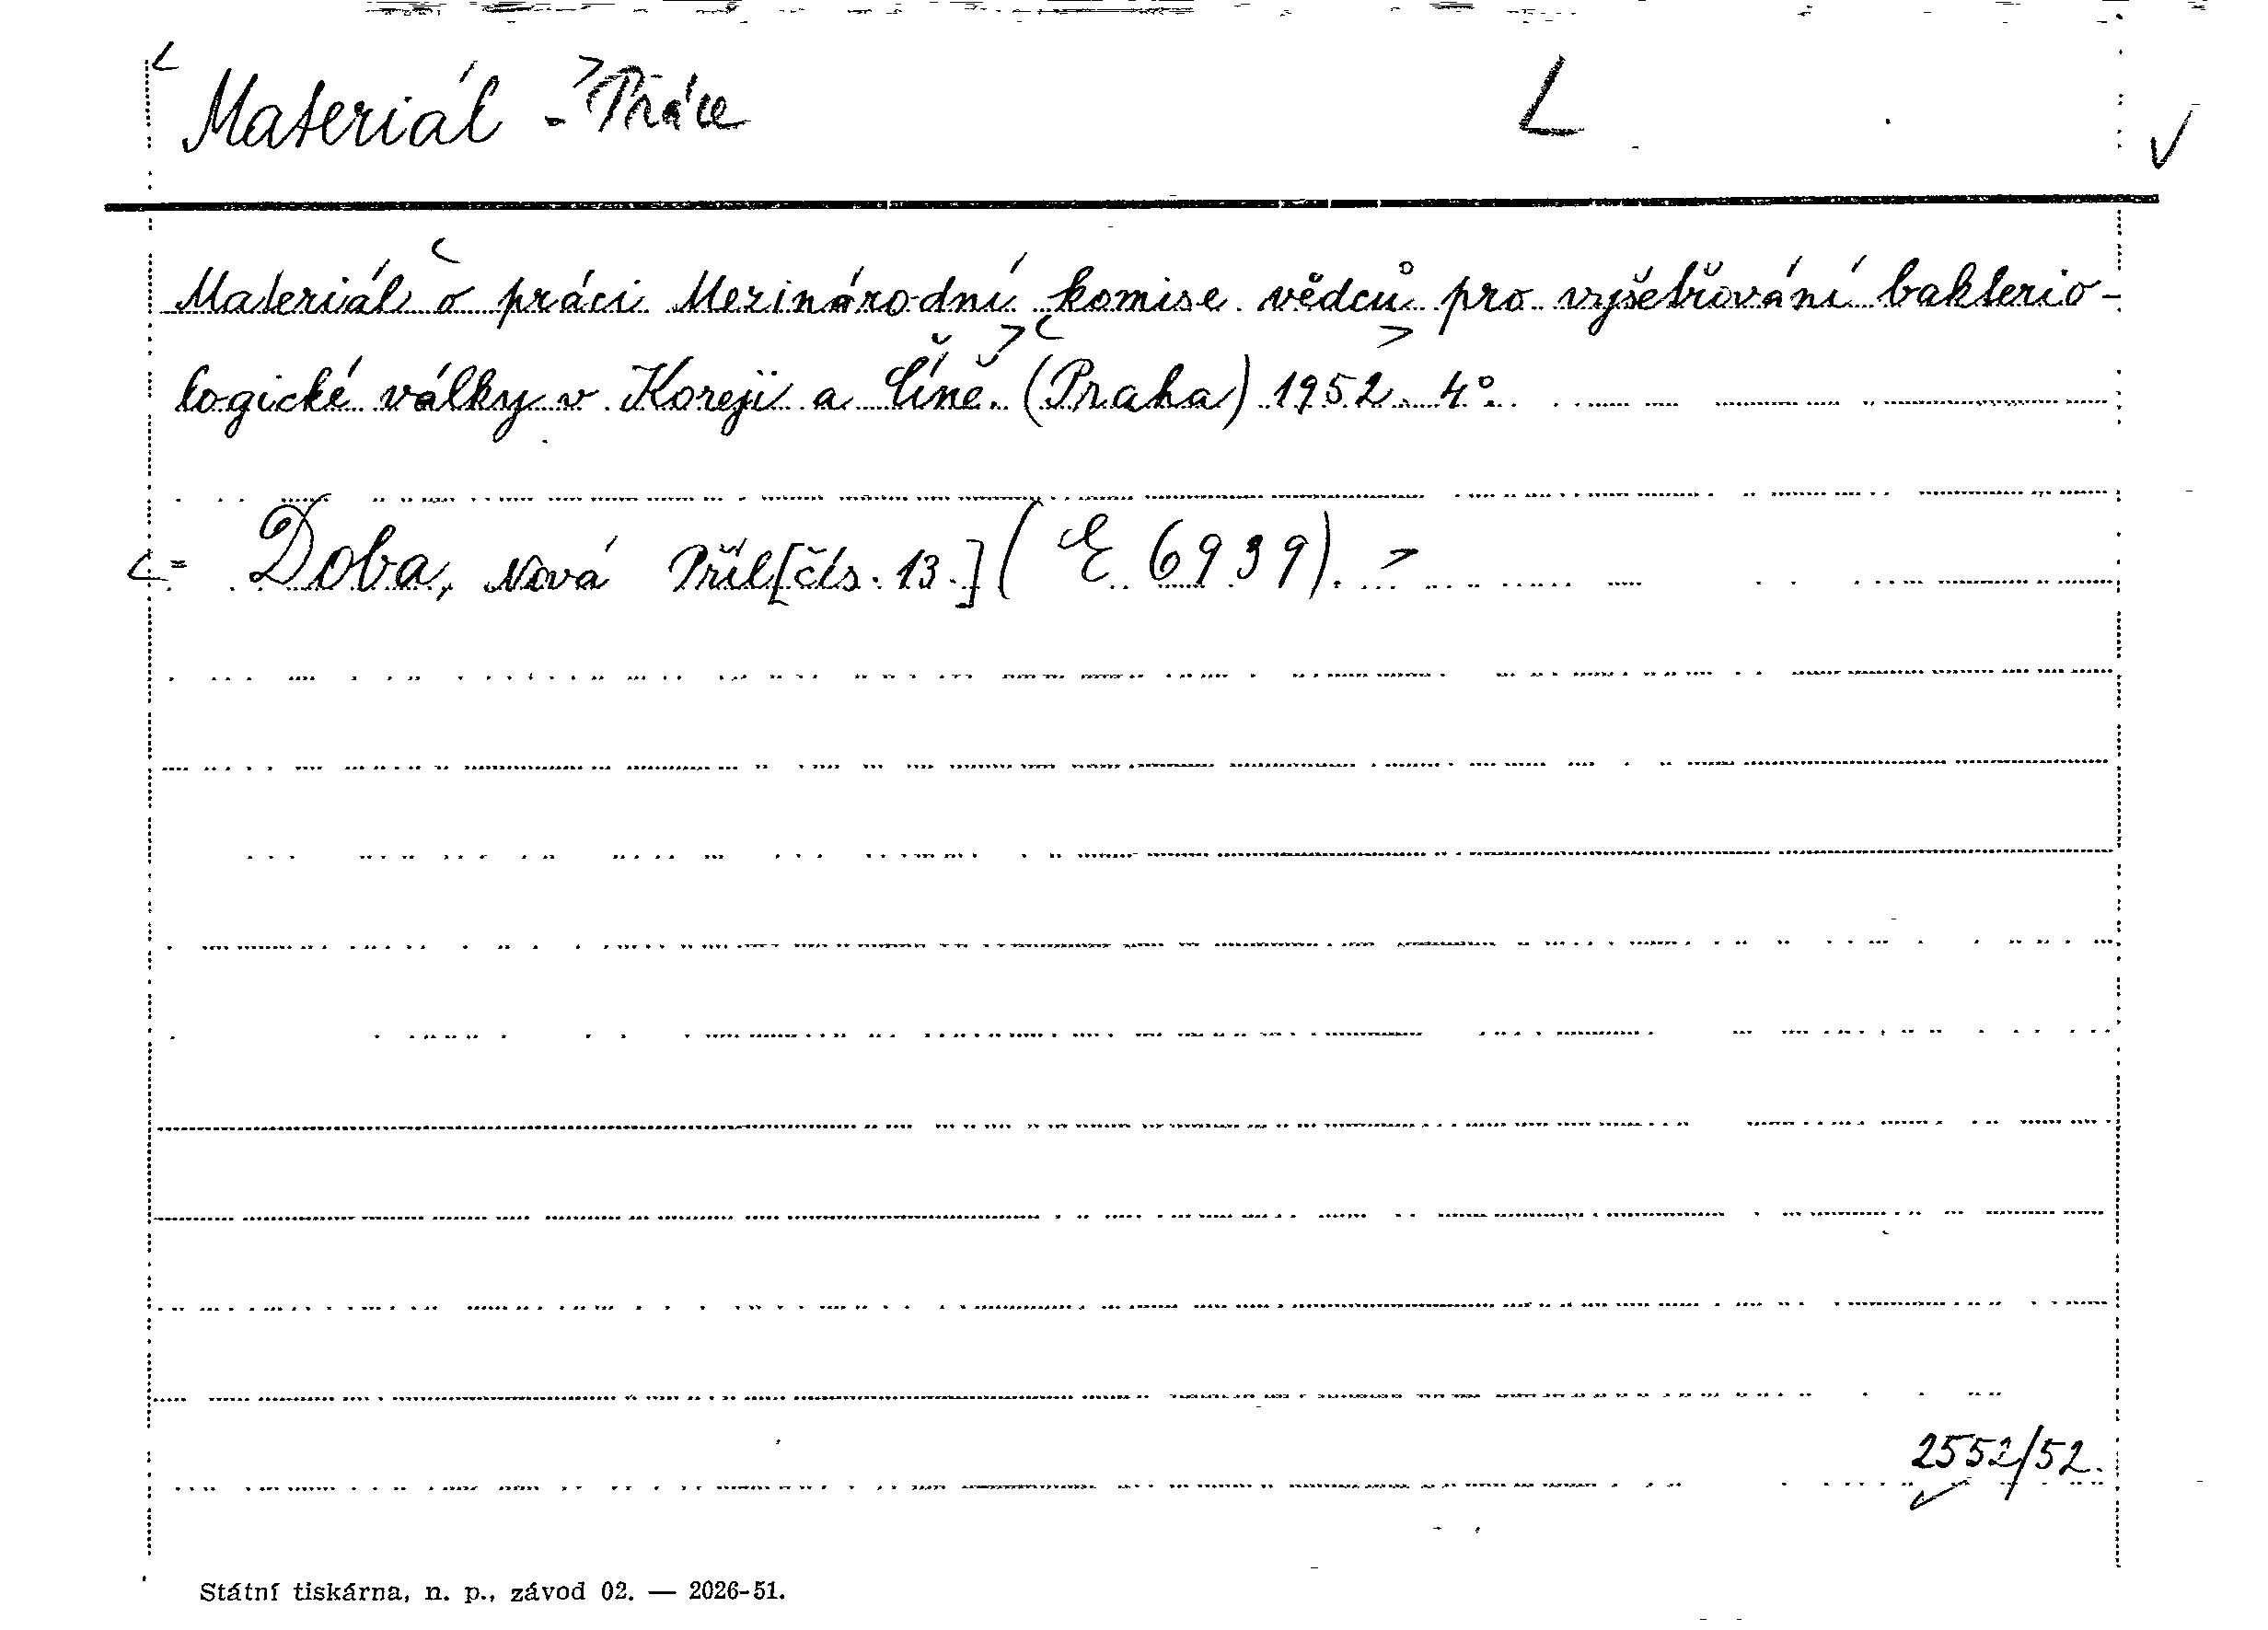 Materiál - Práce L
Materiál o práci Mezinárodní komise vědců pro vyšetřování bakterio-
logické války v Koreji a Číně. (Praha) 1952. 4°.
= Doba, Nová Příl[čís. 13.] (E 6939).
2552/52.
Státní tiskárna, n. p., závod 02. — 2026-51.